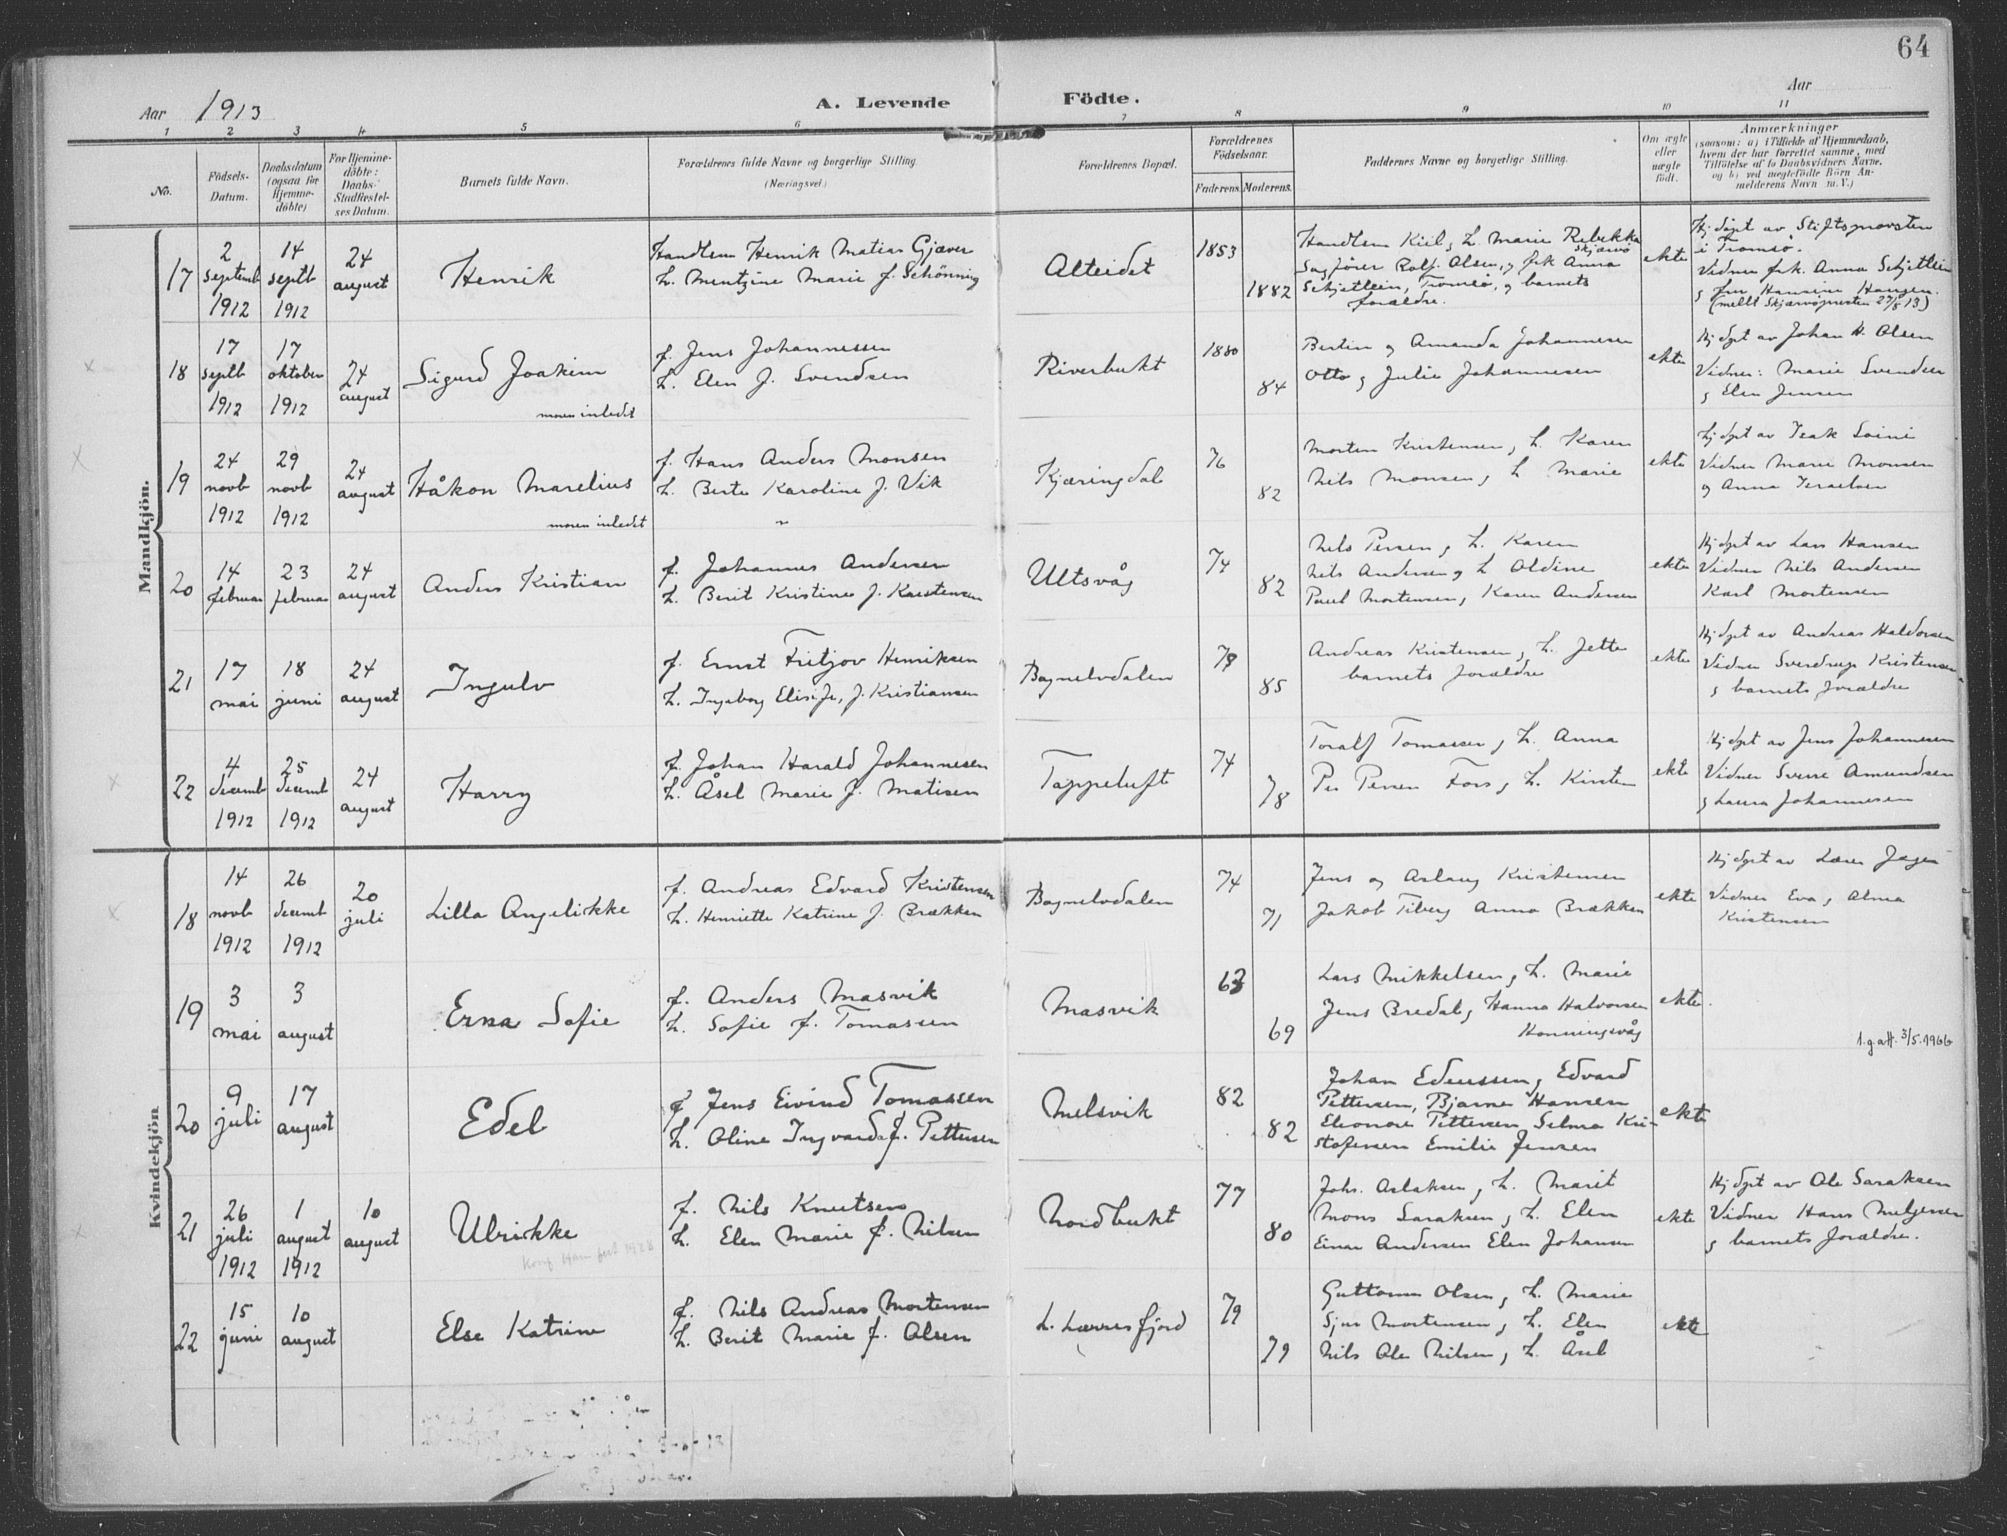 64
Aar 1913
A. Levende Födte.
Aar
1 2 3 4 5 6 7 8 9 10 11
No.
Födsels-Datum.
Daabsdatum (ogsaa for Hjemmedöbte)
For Hjemmedöbte: Daabs-Stadfestelses Datum.
Barnets fulde Navn.
Forældrenes fulde Navne og borgerlige Stilling (Næringsvei.)
Forældrenes Bopæl.
Forældrenes Födselsaar.
Faderens. Moderens.
Faddernes Navne og borgerlige Stilling.
Om ægte eller uægte födt.
Anmærkninger
(saasom: a) i Tilfælde af Hjemmedaab, hvem der har forrettet samme, med Tilföielse af to Daabsvidners Navne, og b) ved uegtefödte Börn Anmelderens Navn m. V.)
Mandkjön.
17
2 septemb 1912
14 septb 1912
24 august
Henrik
Handlsm Henrik Matias Gjæver
h. Mentzine Marie f. Schönning
Alteidet
1853
1882
Handlsm Kiil, h. Marie Rebekka Skjærvö
Sagförer Rolf Olsen, frk Anna
Schjetlein, Tromsö, og barnets
foraldre.
ekte
Hj döpt av Stiftsprovsten
i Tromsö.
Vidner frk. Anna Schjetlein
g fru Hansine Haugen.
(meldt Skjærvöpresten 27/8 13)
18
17 septb 1912
17 oktober 1912
24 august
Sigurd Joakim
moren inledet
f. Jens Johannessen
h. Elen f. Svendsen
Riverbukt
1880
84
Bertin g Amanda Johannesen
Otto g Julie Johannesen
ekte
Hj döpt av Johan H. Olsen
Vidner: Marie Svendsen
g Elen Jensen
19
24 novb 1912
29 novb 1912
24 august
Håkon Marelius
moren inledet
f. Hans Anders Monsen
h. Berte Karoline f. Vik
Kjæringdal
76
82
Morten Kristensen, h. Karen
Nils Monsen, h Marie
ekte
Hj döpt av Isak Soini
Vidner Marie Monsen
og Anna Israelsen
20
14 februar
23 februar
24 august
Anders Kristian
f. Johannes Andersen
h. Berit Kristine f. Karstensen
Ultsvåg
74
82
Nils Persen, h. Karen
Nils Andersen g h Oldine
Paul Mortensen, Karen Andersen
ekte
Hj döpt av Lars Hansen
Vidner Nils Andersen
Karl Mortensen
21
17 mai
18 juni
24 august
Ingulv
f. Ernst Fritjov Henriksen
h. Ingeborg Elise f. Kristiansen
Bognelvdalen
78
85
Andreas Kristensen, h. Jette
barnets foraldre
ekte
Hj döpt av Andreas Haldorsen
Vidner Sverdrup Kristensen
g barnets foraldre
22
4 decemb 1912
25 decemb 1912
24 august
Harry
f. Johan Harald Johannesen
h. Åsel Marie f. Matisen
Tappeluft
74
78
Toralf Tomassen, h. Anna
Per Persen Fors, h. Kirsten
ekte
Hj döpt av Jens Johannesen
Vidner Sverre Amundsen
g Laura Johannesen
Kvindekjön
18
14 novb 1912
26 decemb 1912
20 juli
Lilla Angelikke
f. Andreas Edvard Kristensen
h. Henriette Katrine f. Brækken
Bognelvdalen
74
71
Jens og Aslaug Kristensen
Jakob Tiberg Anna Brækken
ekte
Hj döpt av Lærer Jager
Vidner Eva, Alma
Kristensen
19
3 mai
3 august
Erna Sofie
f. Anders Masvik
h. Sofie f. Tomassen
Masvik
63
69
Lars Mikkelsen, h. Marie
Jens Bredal, Hanna Halvorsen
Honningsvåg
ekte
1.g.att. 3/5.1966
20
9 juli
17 august
Edel
f Jens Eivind Tomassen
h. Oline Ingvarda f. Pettersen
Melsvik
82
82
Johan Edvardsen, Edvard
Pettersen, Bjarne Hansen
Eleonore Pettersen Selma Kri-
stofersen Emilie Jensen
ekte
21
26 juli 1912
1 august 1912
10 august
Ulrikke
Konf Ham fest 1928
f. Nils Knutsen
h. Elen Marie f. Nilsen
Nordbukt
77
80
Johs. Aslaksen, h. Marit
Mons Saraksen, h. Elen
Einar Andersen Elen Johansen
ekte
Hj döpt av Ole Saraksen
Vidner Hans
g barnets foraldre.
22
15 juni
10 august
Else Katrine
f. Nils Andreas Mortensen
h. Berit Marie f. Olsen
L. Lerresfjord
79
79
Guttorm Olsen, h. Marie
Sjur Mortensen, h. Elen
Nils Ole Nilsen, h. Åsel
ekte